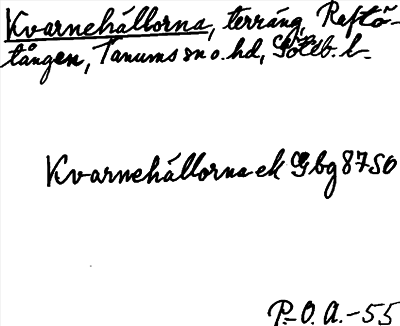 Kvarnehállorna, terräng, Raftö-
tången, Tanums sn o. hd, Göteb. l.
Kvarnehállorna ek Gbg 87SO
P.-O. A.-55